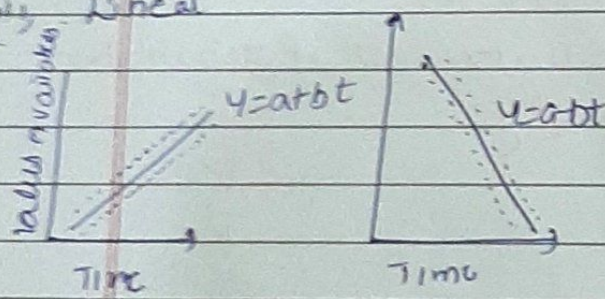 Linear
Values of variables
y=a+bt
y=a-bt
Time
Time